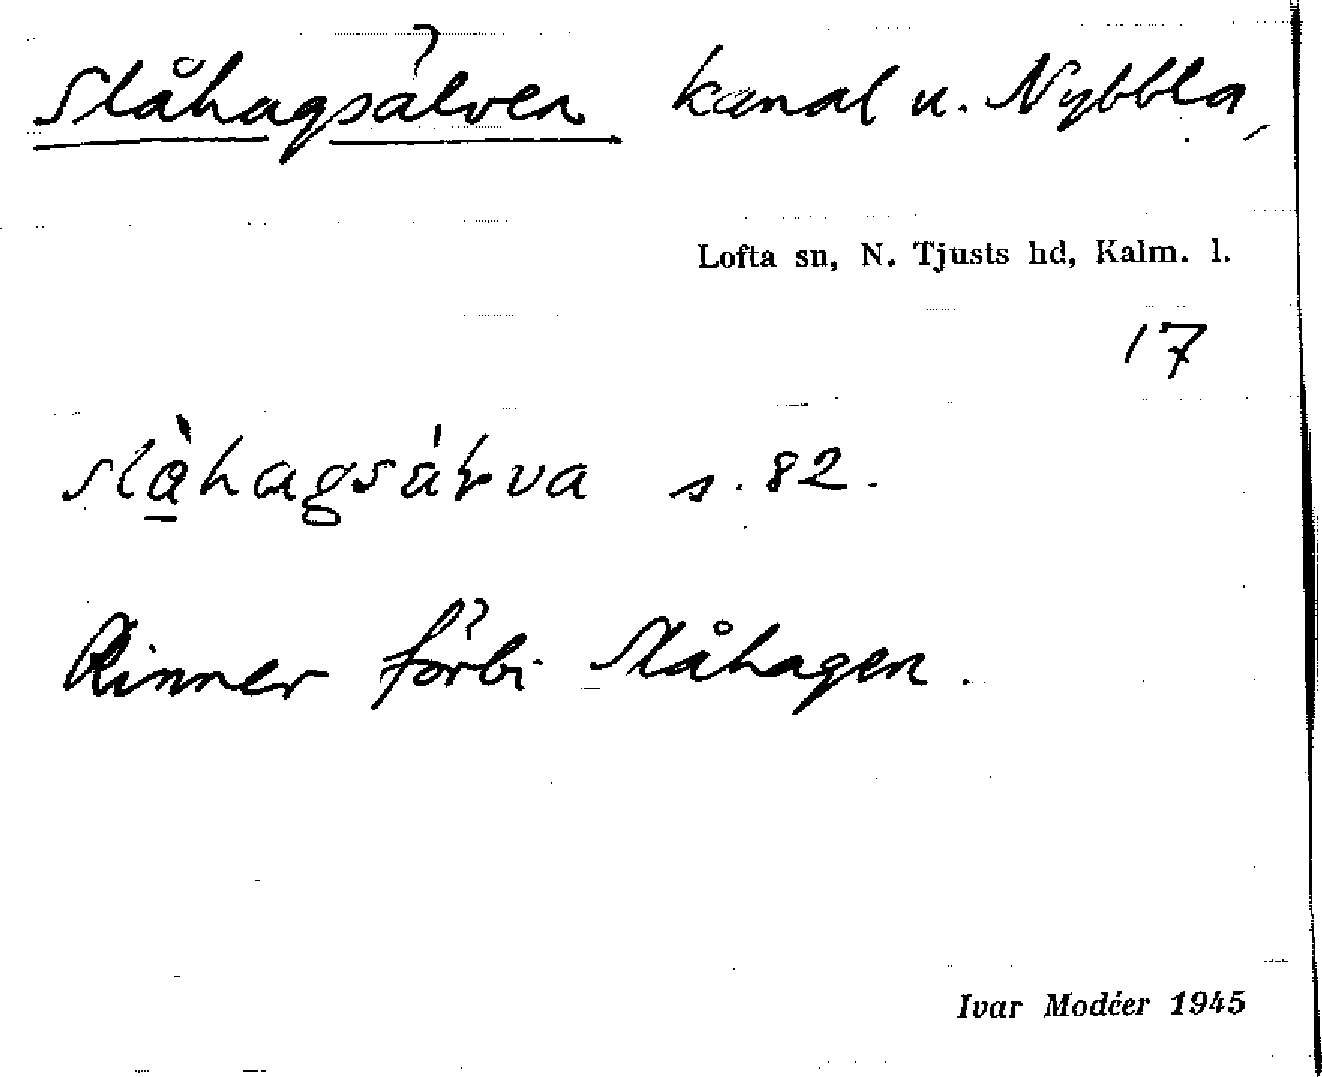 Slåhagsälven kanal u. Nybbla,
Lofta sn, N. Tjusts hd, Kalm. l.
17
s. 82.
Rinner förbi Slåhagen.
Ivar Modéer 1945